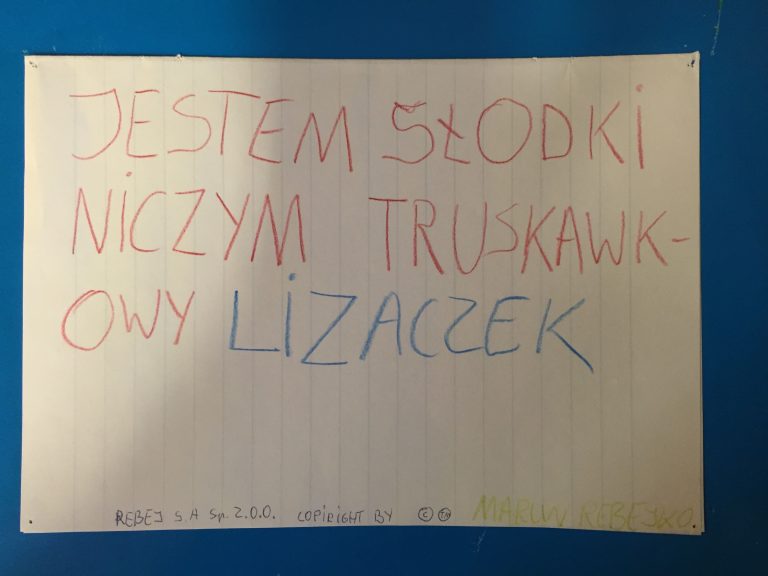 JESTEM SŁODKI
NICZYM TRUSKAWK-
OWY LIZACZEK
REBEJ S.A Sp. Z.O.O. COPIRIGHT BY © ™ MARCIN REBEJKO